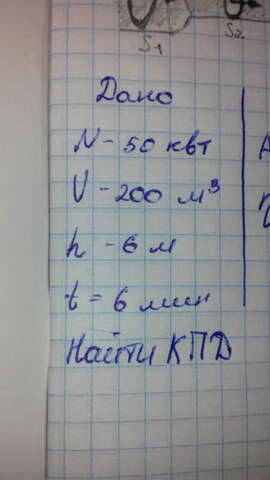 S1 S2
Дано
N - 50 квт
V - 200 м³
h - 6 м
t = 6 мин
Найти КПД